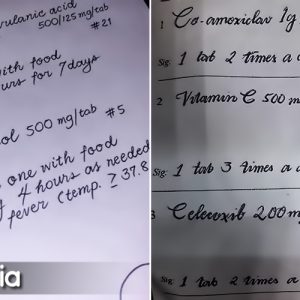 vulanic acid
500/125 mg/tab
#21
with food
urs for 7 days
ol 500 mg/tab #5
one with food
4 hours as needed
fever (temp. ≥ 37.8
ia
1 Co-amoxiclav 1g
Sig: 1 tab 2 times a
2 Vitamin C 500 m
Sig: 1 tab 3 times a
3 Celecoxib 200 m
Sig: 1 tab 2 times a